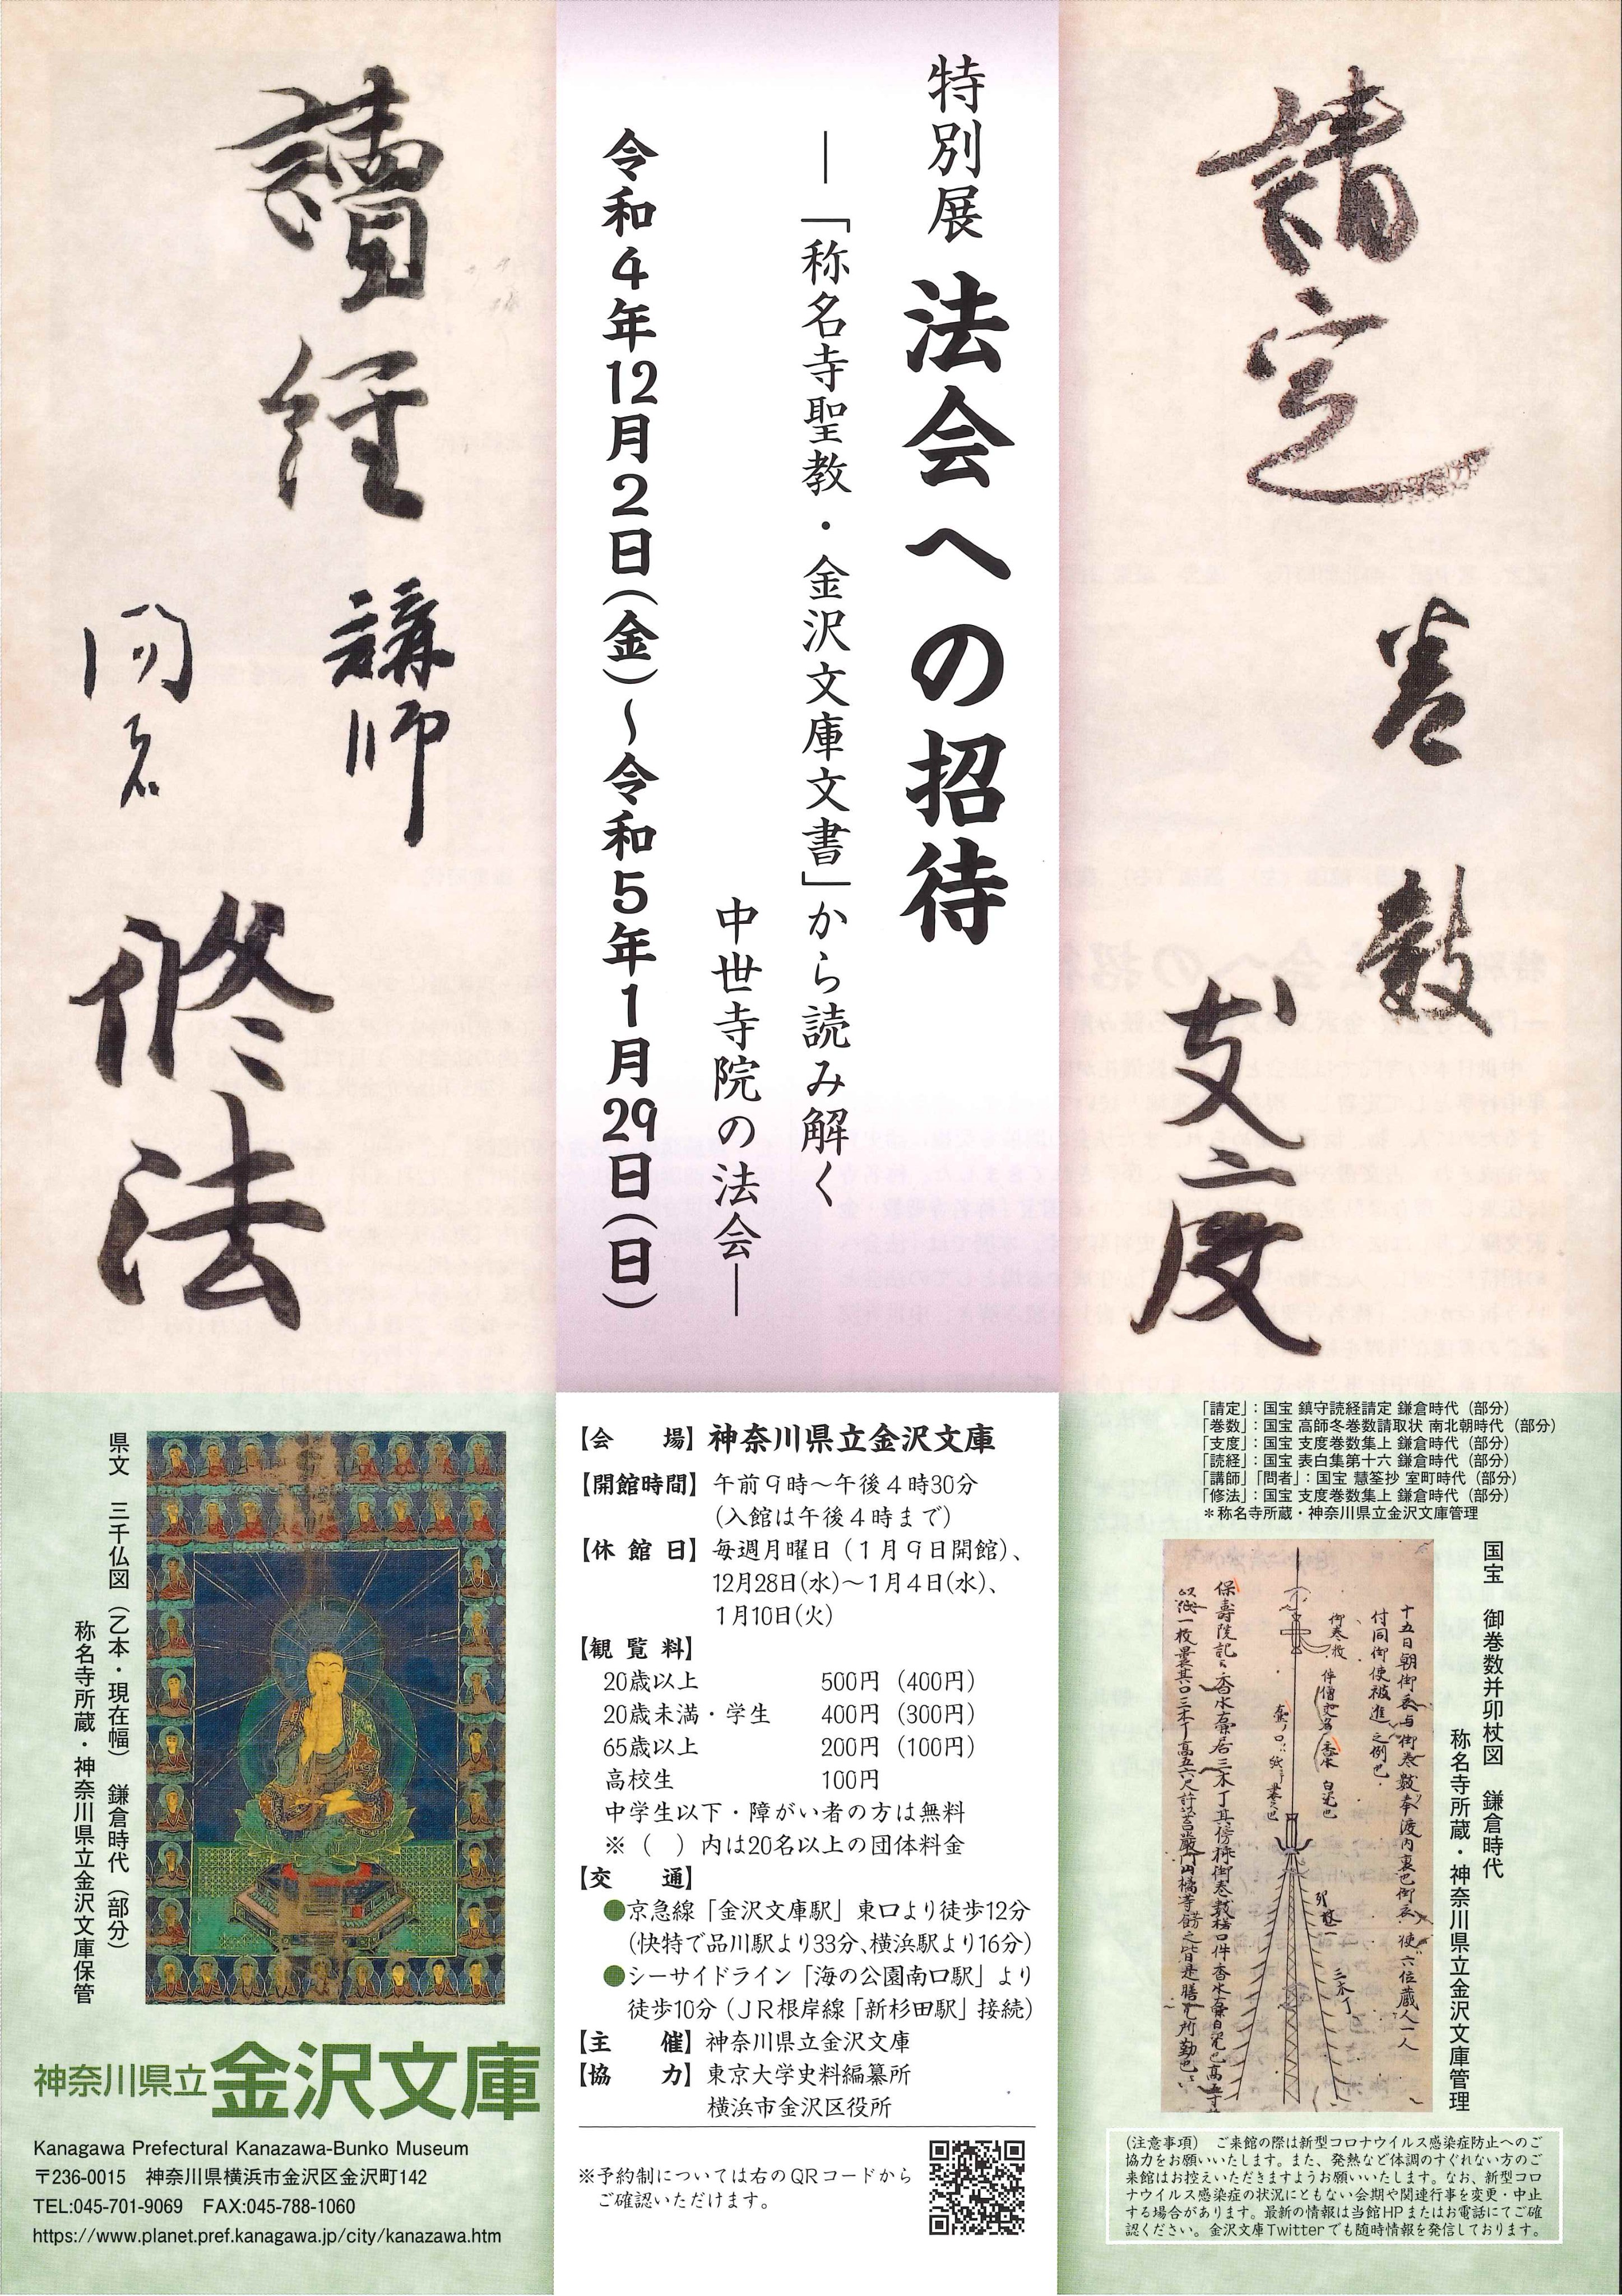 請定
巻数
支度
特別展 法会への招待
―「称名寺聖教・金沢文庫文書」から読み解く
中世寺院の法会―
令和4年12月2日(金)～令和5年1月29日(日)
讀経
講師
問者
修法
「請定」：国宝 鎮守読経請定 鎌倉時代（部分）
「巻数」：国宝 高師冬巻数請取状 南北朝時代（部分）
「支度」：国宝 支度巻数集上 鎌倉時代（部分）
「読経」：国宝 表白集第十六 鎌倉時代（部分）
「講師」「問者」：国宝 慧筌抄 室町時代（部分）
「修法」：国宝 支度巻数集上 鎌倉時代（部分）
＊称名寺所蔵・神奈川県立金沢文庫管理
国宝　御巻数并卯杖図　鎌倉時代
称名寺所蔵・神奈川県立金沢文庫管理
十五日朝御衣与御巻数奉渡内裏也御衣使六位蔵人一人
付同御使被進之例也
御巻数
（注意事項）　ご来館の際は新型コロナウイルス感染症防止へのご
協力をお願いいたします。また、発熱など体調のすぐれない方のご
来館はお控えいただきますようお願いいたします。なお、新型コロ
ナウイルス感染症の状況にともない会期や関連行事を変更・中止
する場合があります。最新の情報は当館HPまたはお電話にてご確
認ください。金沢文庫Twitterでも随時情報を発信しております。
【会　　場】神奈川県立金沢文庫
【開館時間】午前9時～午後4時30分
(入館は午後4時まで)
【休 館 日】毎週月曜日（1月9日開館）、
12月28日(水)～1月4日(水)、
1月10日(火)
【観 覧 料】
20歳以上　500円（400円）
20歳未満・学生　400円（300円）
65歳以上　200円（100円）
高校生　100円
中学生以下・障がい者の方は無料
※（　）内は20名以上の団体料金
【交　　通】
●京急線「金沢文庫駅」東口より徒歩12分
(快特で品川駅より33分、横浜駅より16分)
●シーサイドライン「海の公園南口駅」より
徒歩10分（ＪＲ根岸線「新杉田駅」接続）
【主　　催】神奈川県立金沢文庫
【協　　力】東京大学史料編纂所
横浜市金沢区役所
※予約制については右のQRコードから
ご確認いただけます。
県文　三千仏図（乙本・現在幅）　鎌倉時代（部分）
称名寺所蔵・神奈川県立金沢文庫保管
神奈川県立金沢文庫
Kanagawa Prefectural Kanazawa-Bunko Museum
〒236-0015　神奈川県横浜市金沢区金沢町142
TEL:045-701-9069　FAX:045-788-1060
https://www.planet.pref.kanagawa.jp/city/kanazawa.htm